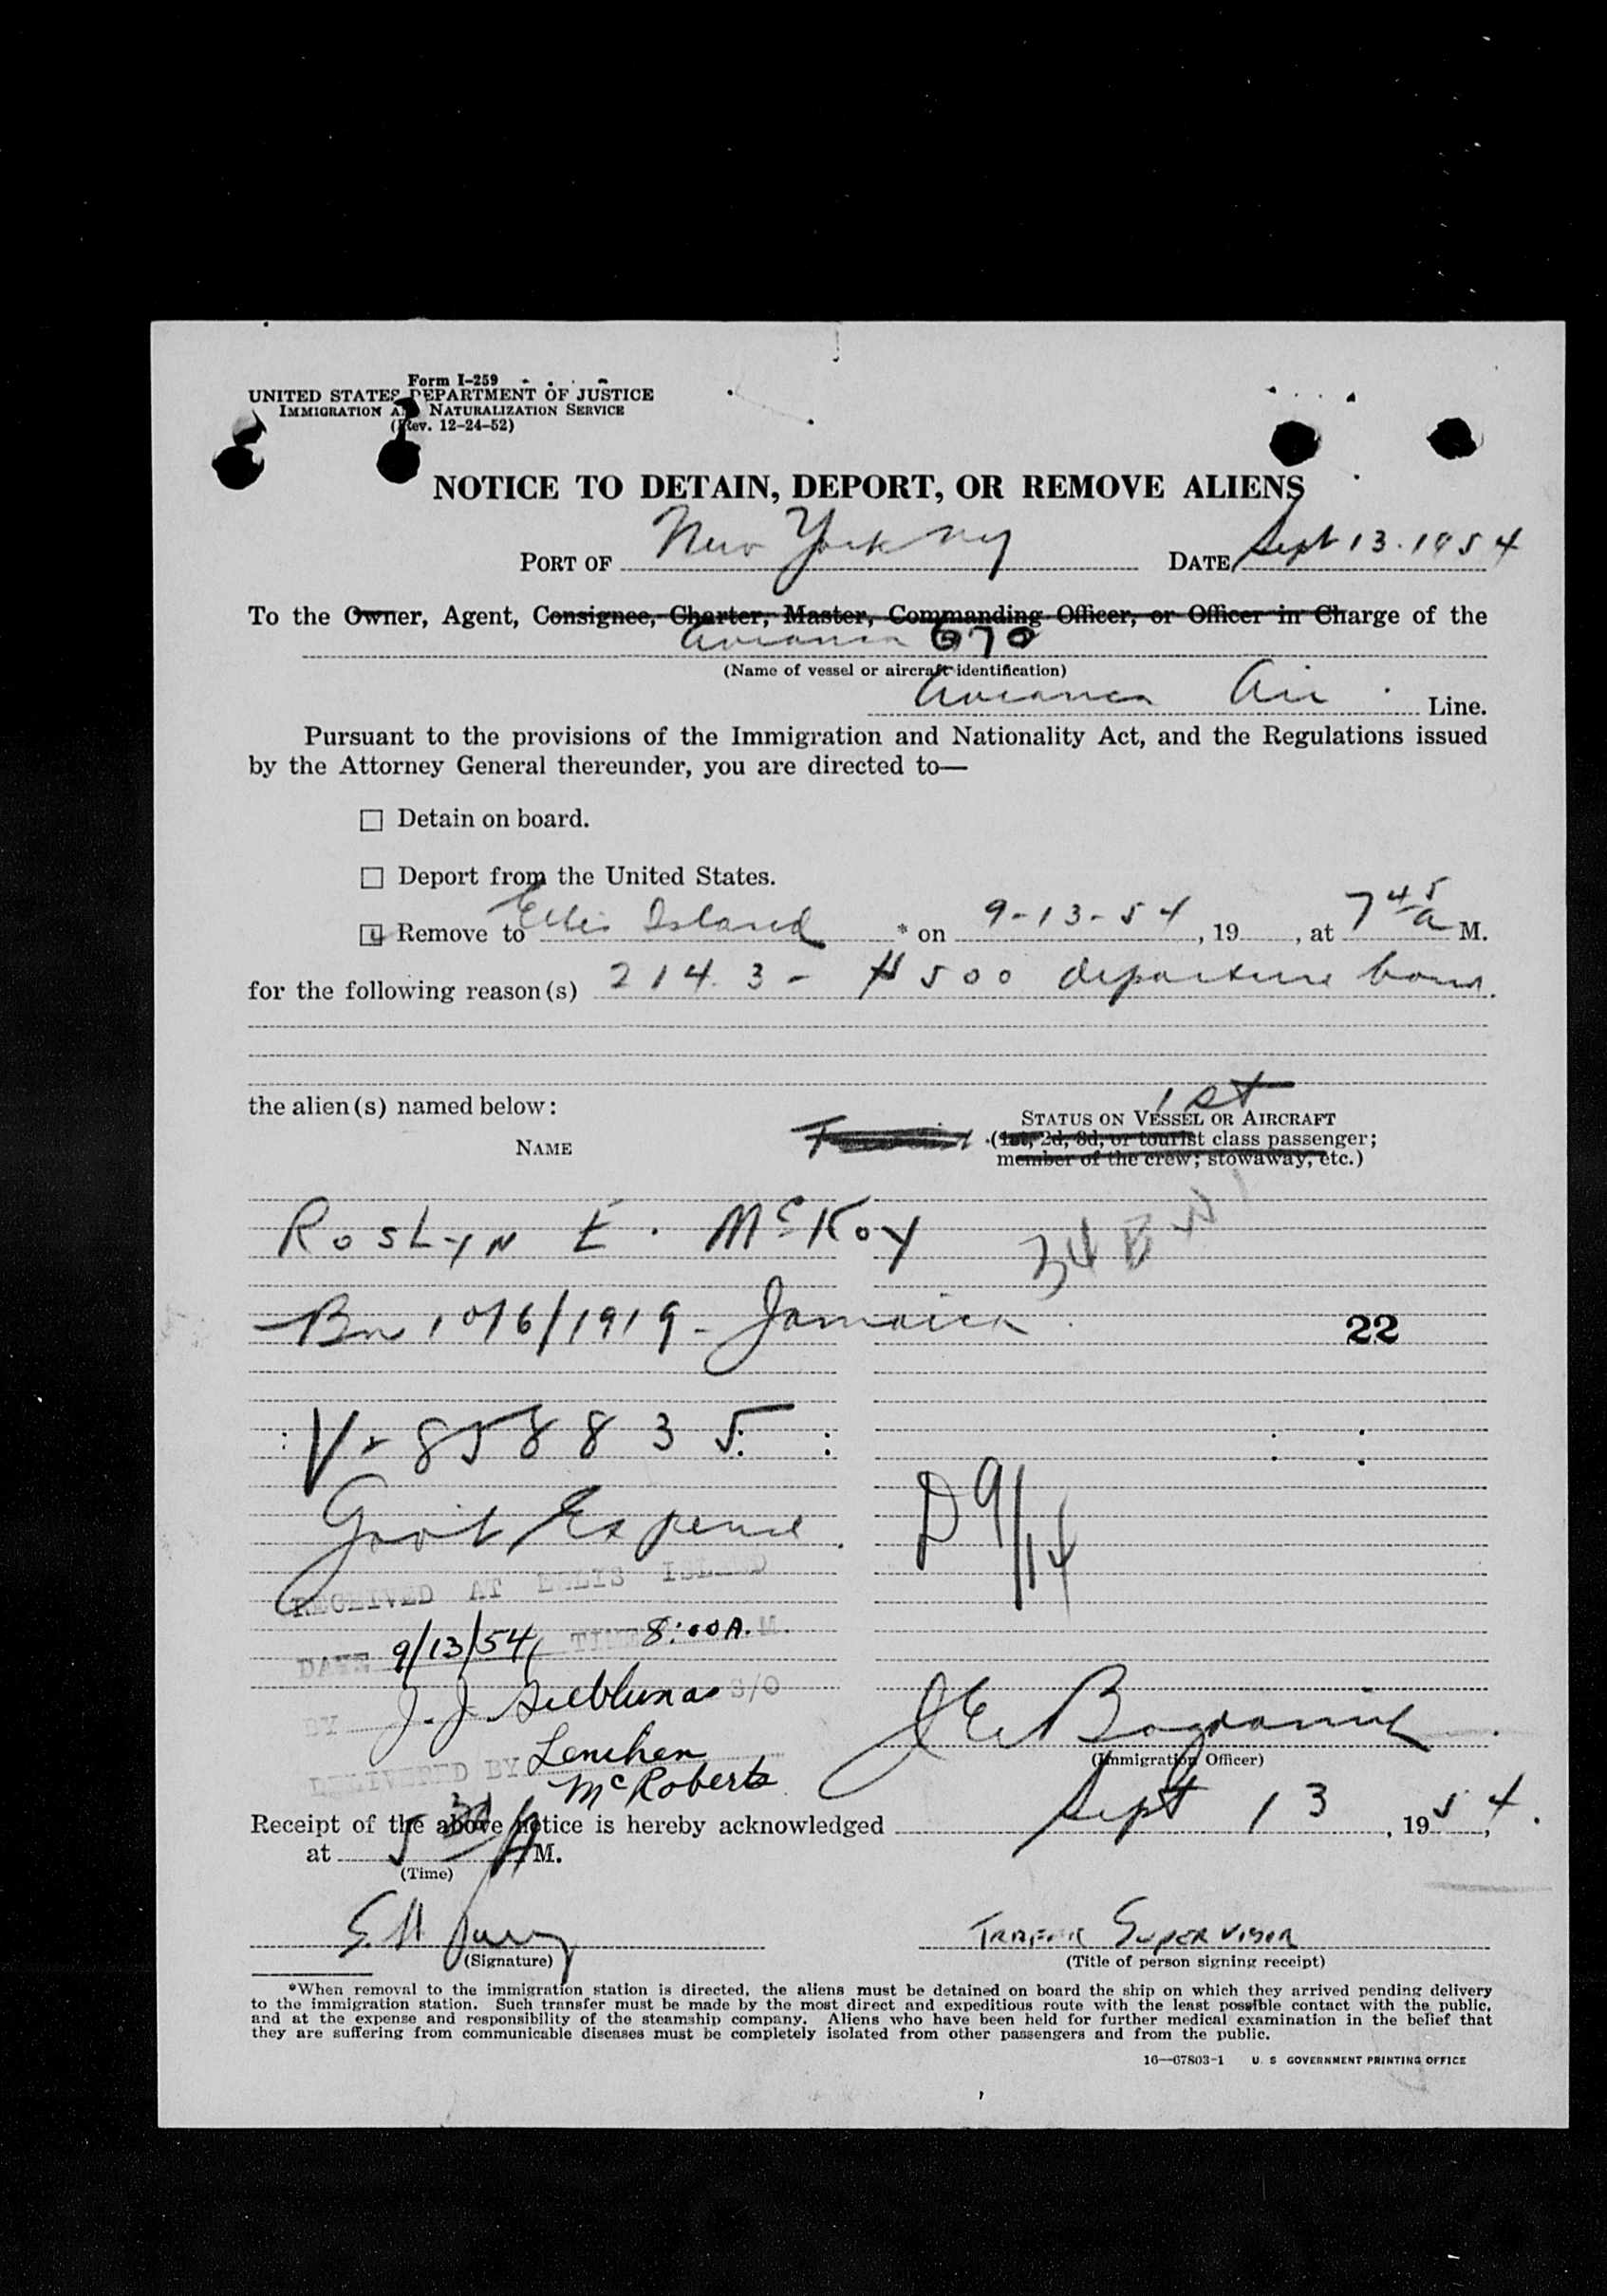 Form I-259
UNITED STATES DEPARTMENT OF JUSTICE
IMMIGRATION AND NATURALIZATION SERVICE
(Rev. 12-24-52)
NOTICE TO DETAIN, DEPORT, OR REMOVE ALIENS
PORT OF New York NY DATE Sept 13. 1954
To the Owner, Agent, Consignee, Charter, Master, Commanding Officer, or Officer in Charge of the
Avianca 670
(Name of vessel or aircraft identification)
Avianca Air Line.
Pursuant to the provisions of the Immigration and Nationality Act, and the Regulations issued
by the Attorney General thereunder, you are directed to—
Detain on board.
Deport from the United States.
Remove to Ellis Island * on 9-13-54, 19 , at 7 45 a M.
for the following reason(s) 214.3 - $500 departure bond.
the alien(s) named below:
1st
STATUS ON VESSEL OR AIRCRAFT
(1st, 2d, 3d, or tourist class passenger;
NAME
member of the crew; stowaway, etc.)
Roslyn E. McKoy
34 B W I
Bn 10/6/1919 - Jamaica
22
V- 858835
Gov't Expense
D 9/14
RECEIVED AT ELLIS ISLAND
DATE 9/13/54 TIME 8:00 A.M.
BY J. J. S/O
DELIVERED BY Lenehan
McRoberts
(Immigration Officer)
Receipt of the above notice is hereby acknowledged Sept 13, 1954.
at 5 30 A M.
(Time)
Traffic Supervisor
(Signature) (Title of person signing receipt)
*When removal to the immigration station is directed, the aliens must be detained on board the ship on which they arrived pending delivery
to the immigration station. Such transfer must be made by the most direct and expeditious route with the least possible contact with the public,
and at the expense and responsibility of the steamship company. Aliens who have been held for further medical examination in the belief that
they are suffering from communicable diseases must be completely isolated from other passengers and from the public.
16—67803-1 U. S GOVERNMENT PRINTING OFFICE